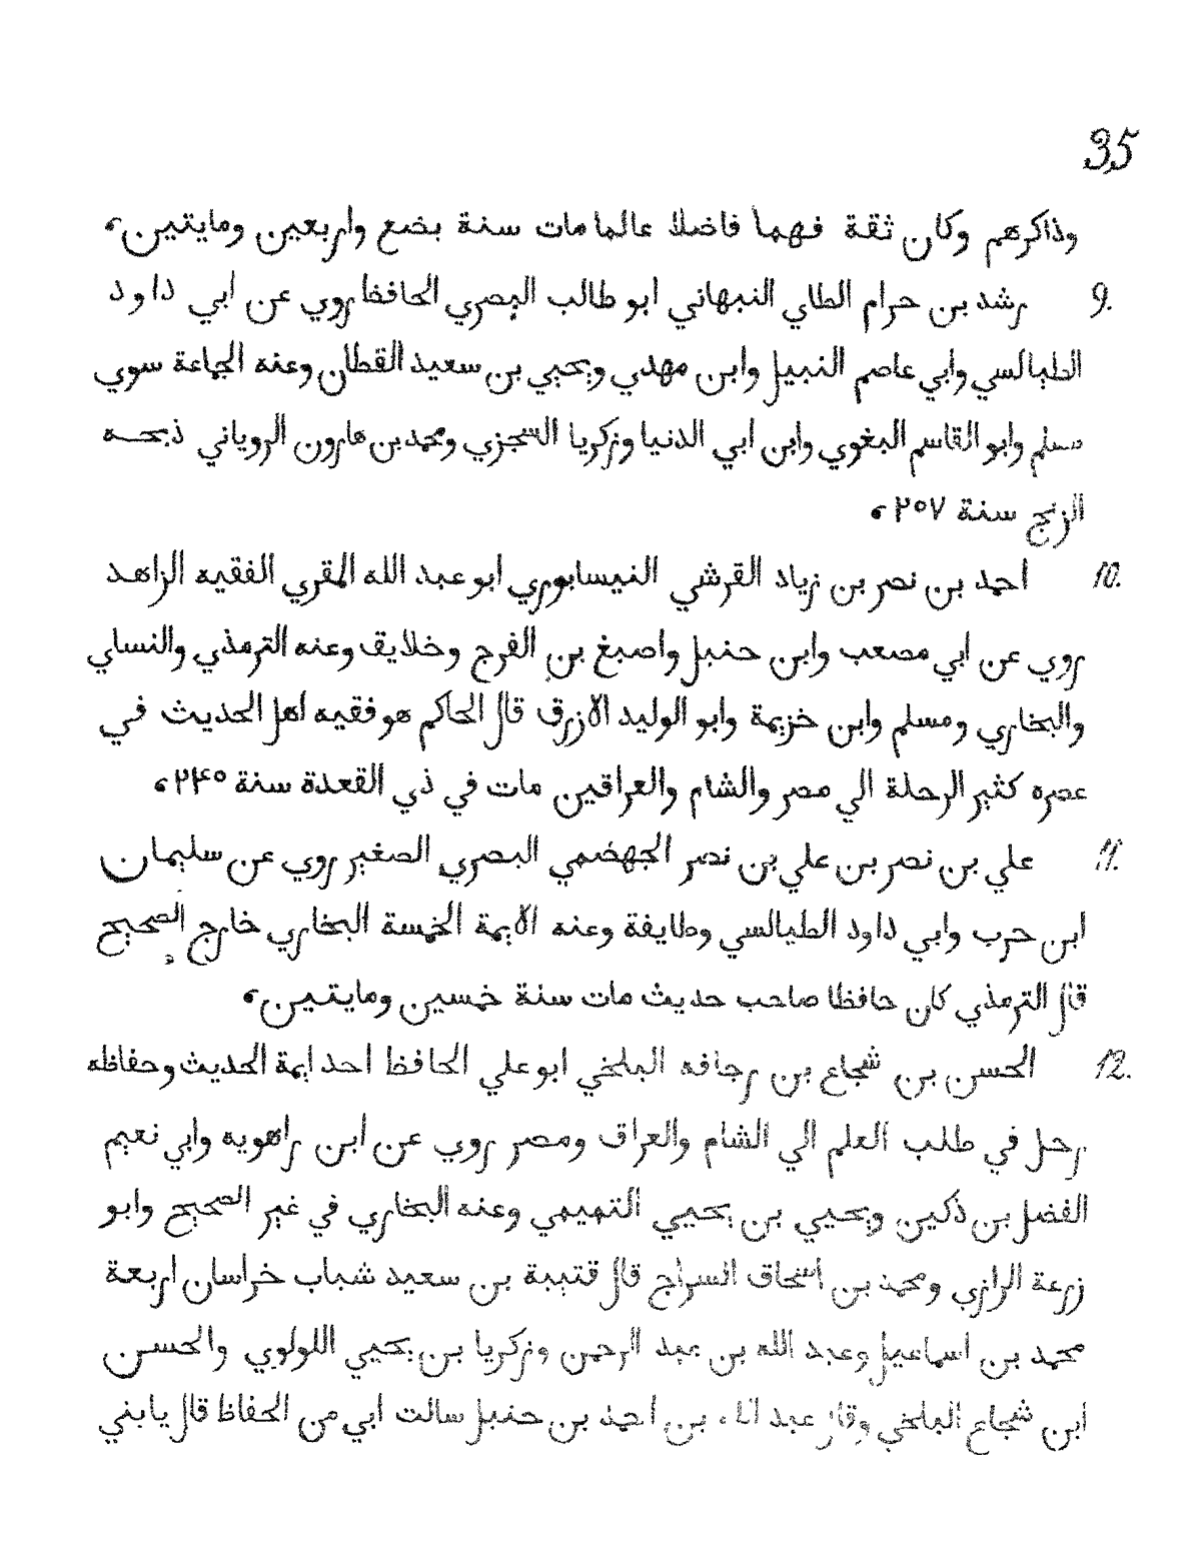 35
وذاكرهم وكان ثقة فهما فاضلا عالما مات سنة بضع واربعين ومايتين،
9. رشد بن حرام الطاي النبهاني ابو طالب البصري الحافظ روي عن ابي داود
الطيالسي وابي عاصم النبيل وابن مهدي ويحيي بن سعيد القطان وعنه الجماعة سوي
مسلم وابو القاسم البغوي وابن ابي الدنيا وزكريا السجزي ومحمد بن هارون الروياني ذبحه
الزنج سنة ٢٥٧،
10. احمد بن نصر بن زياد القرشي النيسابوري ابو عبد الله المقري الفقيه الزاهد
روي عن ابي مصعب وابن حنبل واصبغ بن الفرج وخلايق وعنه الترمذي والنساي
والبخاري ومسلم وابن خزيمة وابو الوليد الازرق قال الحاكم هو فقيه اهل الحديث في
عصره كثير الرحلة الي مصر والشام والعراقين مات في ذي القعدة سنة ٢٤٥،
11. علي بن نصر بن علي بن نصر الجهضمي البصري الصغير روي عن سليمان
ابن حرب وابي داود الطيالسي وطايفة وعنه الايمة الخمسة البخاري خارج الصحيح
قال الترمذي كان حافظا صاحب حديث مات سنة خمسين ومايتين،
12. الحسن بن شجاع بن رجافه البلخي ابو علي الحافظ احد ايمة الحديث وحفاظه
رحل في طلب العلم الي الشام والعراق ومصر روي عن ابن راهويه وابي نعيم
الفضل بن ذكين ويحيي بن يحيي التميمي وعنه البخاري في غير الصحيح وابو
زرعة الرازي ومحمد بن اسحاق السراج قال قتيبة بن سعيد شباب خراسان اربعة
محمد بن اسماعيل وعبد الله بن عبد الرحمن وزكريا بن يحيي اللولوي والحسن
ابن شجاع البلخي وقال عبد الله بن احمد بن حنبل سالت ابي من الحفاظ قال يا بني